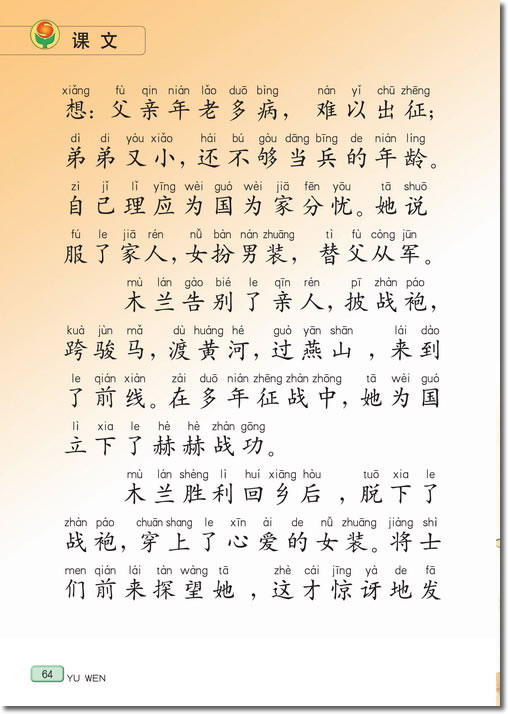 课文
xiǎng fù qin nián lǎo duō bìng nán yǐ chū zhēng
想：父亲年老多病，难以出征；
dì di yòu xiǎo hái bú gòu dāng bīng de nián líng
弟弟又小，还不够当兵的年龄。
zì jǐ lǐ yīng wèi guó wèi jiā fēn yōu tā shuō
自己理应为国为家分忧。她说
fú le jiā rén nǚ bàn nán zhuāng tì fù cóng jūn
服了家人，女扮男装，替父从军。
mù lán gào bié le qīn rén pī zhàn páo
木兰告别了亲人，披战袍，
kuà jùn mǎ dù huáng hé guò yān shān lái dào
跨骏马，渡黄河，过燕山，来到
le qián xiàn zài duō nián zhēng zhàn zhōng tā wèi guó
了前线。在多年征战中，她为国
lì xia le hè hè zhàn gōng
立下了赫赫战功。
mù lán shèng lì huí xiāng hòu tuō xia le
木兰胜利回乡后，脱下了
zhàn páo chuān shang le xīn ài de nǚ zhuāng jiàng shì
战袍，穿上了心爱的女装。将士
men qián lái tàn wàng tā zhè cái jīng yà de fā
们前来探望她，这才惊讶地发
64 YU WEN